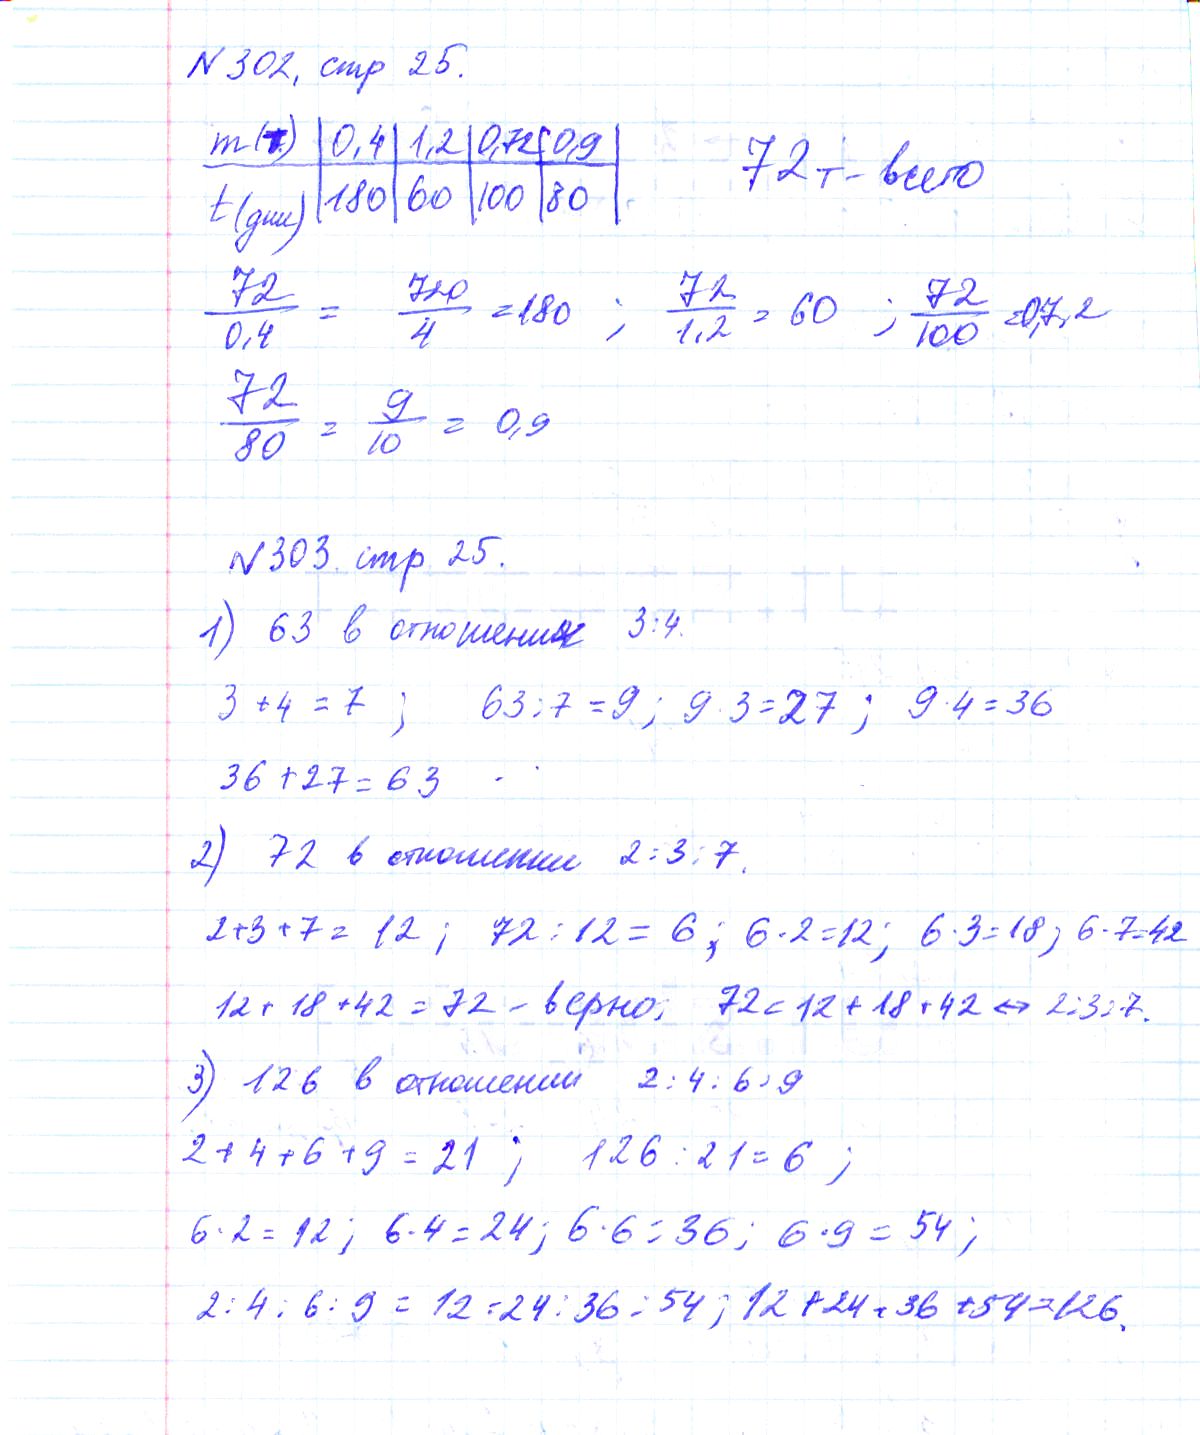 N 302, стр 25.
m(т) | 0,4 | 1,2 | 0,72 | 0,9 |
t(дни) | 180 | 60 | 100 | 80 |
72т - всего
72/0,4 = 720/4 = 180 ; 72/1,2 = 60 ; 72/100 = 0,7,2
72/80 = 9/10 = 0,9
N 303. стр 25.
1) 63 в отношении 3:4.
3+4=7 ; 63:7=9; 9·3=27; 9·4=36
36+27=63
2) 72 в отношении 2:3:7.
2+3+7=12; 72:12=6; 6·2=12; 6·3=18; 6·7=42
12+18+42=72 - верно; 72=12+18+42 ↔ 2:3:7.
3) 126 в отношении 2:4:6:9
2+4+6+9=21 ; 126:21=6 ;
6·2=12; 6·4=24; 6·6=36; 6·9=54;
2:4:6:9=12:24:36:54; 12+24+36+54=126.